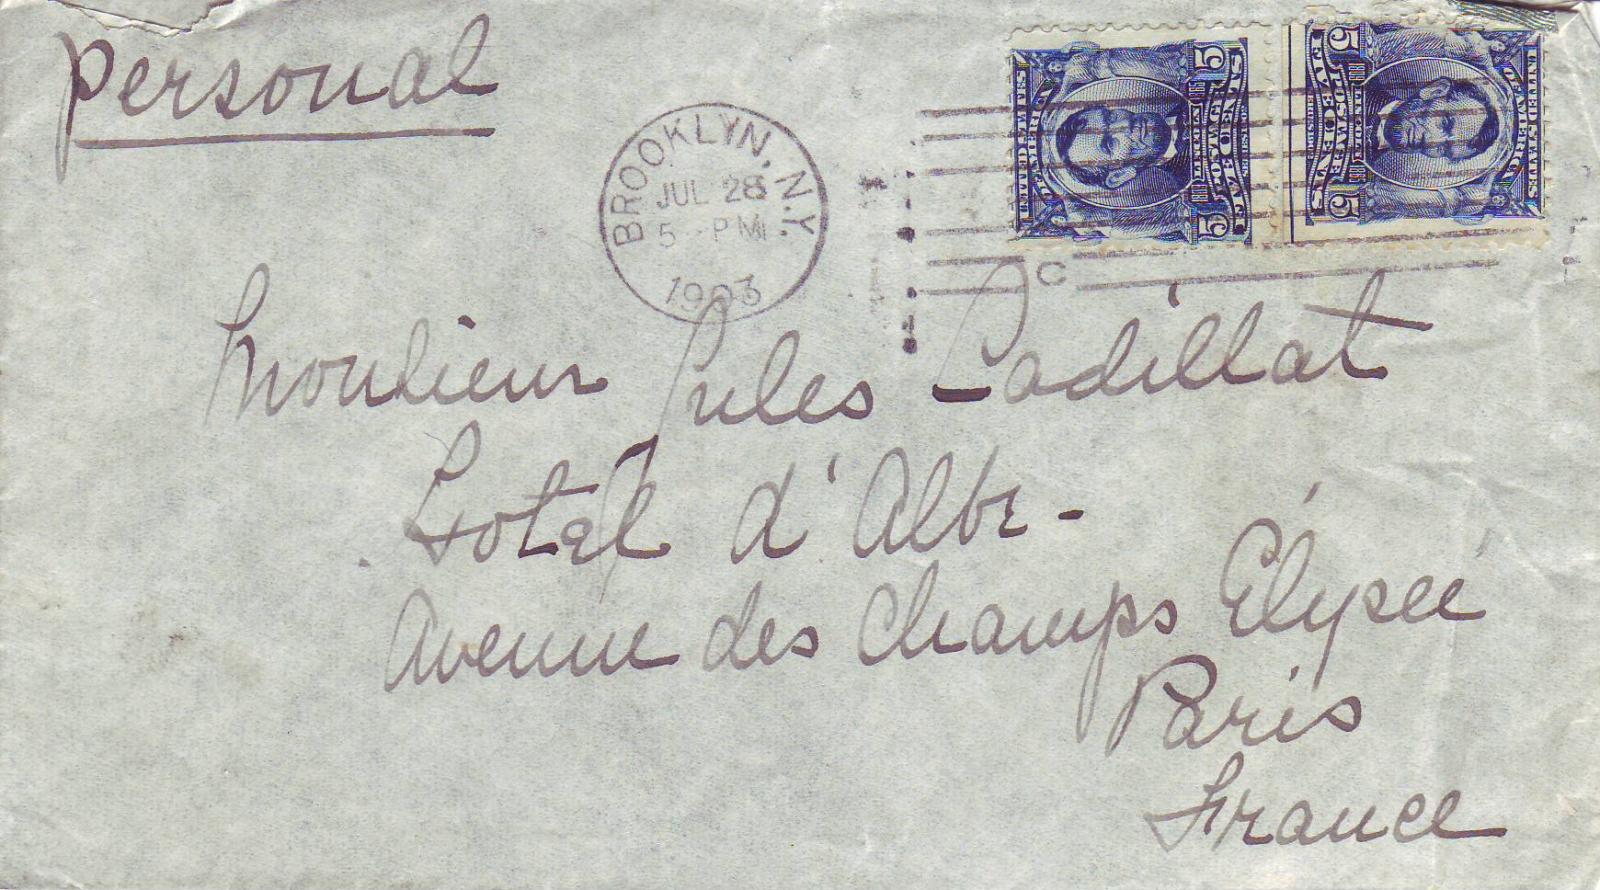 Personal
BROOKLYN, N.Y.
JUL 28
5 - PM
1903
C
UNITED STATES OF AMERICA
POSTAGE
FIVE CENTS
5 5
UNITED STATES OF AMERICA
POSTAGE
FIVE CENTS
5 5
Monsieur Jules Cadillat
Hotel d'Albe-
Avenue des Champs Élysée
Paris
France